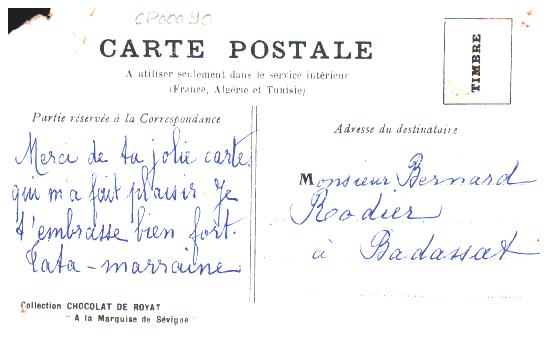 CP0009C
CARTE POSTALE
A utiliser seulement dans le service intérieur
(France, Algérie et Tunisie)
TIMBRE
Partie réservée à la Correspondance
Merci de ta jolie carte
qui m'a fait plaisir. Je
t'embrasse bien fort.
Tata - marraine
Collection CHOCOLAT DE ROYAT
"A la Marquise de Sévigné"
Adresse du destinataire
Monsieur Bernard
Rodier
à Badassat